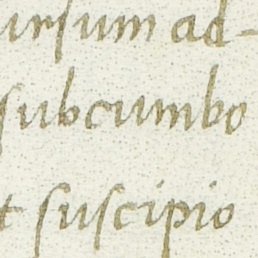 ursum ad-
subcumbo
t suscipio